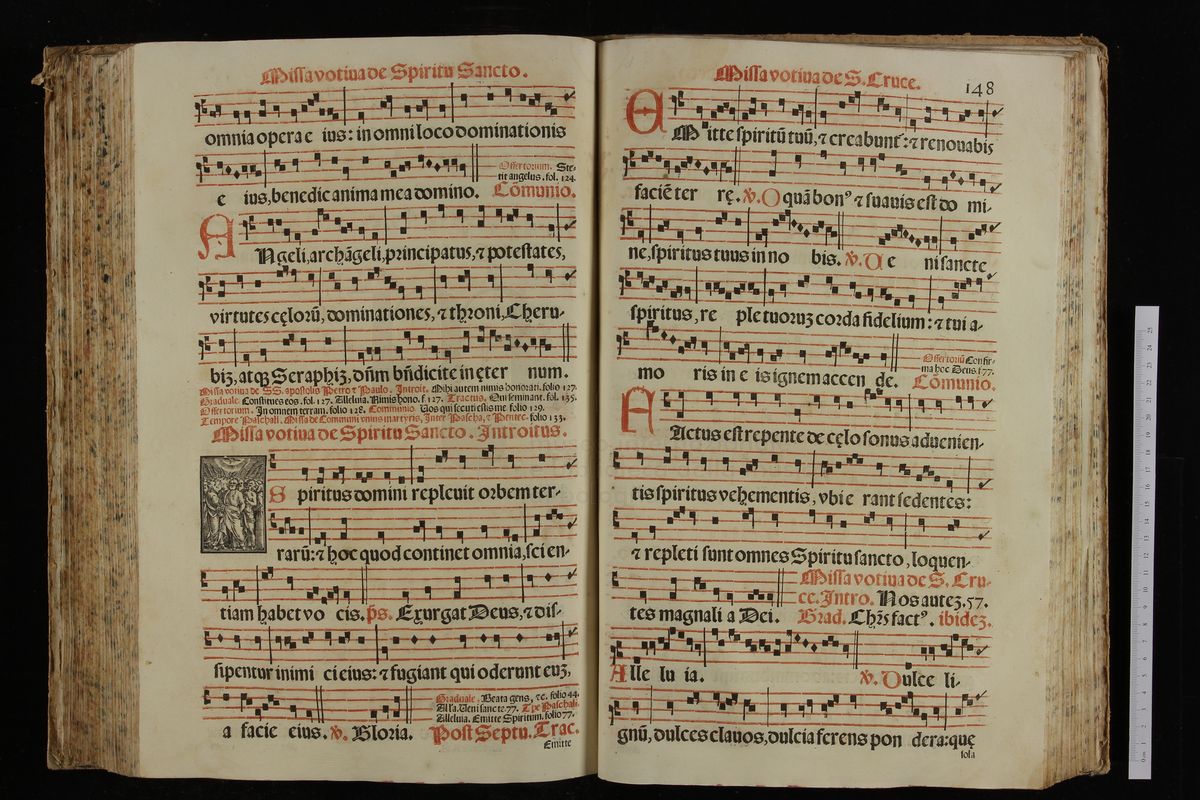 Missa votiua de Spiritu Sancto.
omnia opera e ius: in omni loco dominationis
e ius, benedic anima mea domino.
Offertorium. Ste-
tit angelus. fol. 124.
Cõmunio.
ANgeli, archãgeli, principatus, ⁊ potestates,
virtutes cęlorũ, dominationes, ⁊ throni, Cheru-
biz, atqꝫ Seraphiz, dñm bñdicite in ęter num.
Missa votiua de SS. apostolis Petro ⁊ Paulo. Introit. Mihi autem nimis honorati. folio 127.
Graduale. Constitues eos. fol. 127. Alleluia. Nimis hono. f. 127. Tractus. Qui seminant. fol. 135.
Offertorium. In omnem terram. folio 128. Communio. Vos qui secuti estis me folio 129.
Tempore Paschali. Missa de Communi vnius martyris, Inter Pascha, ⁊ Pentec. folio 133.
Missa votiua de Spiritu Sancto. Introitus.
Spiritus domini repleuit orbem ter-
rarũ: ⁊ hoc quod continet omnia, sci en-
tiam habet vo cis. ps. Exurgat Deus, ⁊ dis-
sipentur inimi ci eius: ⁊ fugiant qui oderunt euꝫ,
a facie eius. ℣. Gloria.
Graduale. Beata gens, ⁊c. folio 44.
Alla. Veni sancte. 77. Tpe Paschali.
Alleluia. Emitte Spiritum. folio 77.
Post Septu. Trac.
Emitte
Missa votiua de S. Cruce.
148
EMitte spiritũ tuũ, ⁊ creabunt᷑: ⁊ renouabis
faciẽ ter rę. ℣. O quã bonꝰ ⁊ suauis est do mi-
ne, spiritus tuus in no bis. ℣. Ue ni sancte
spiritus, re ple tuoruꝫ corda fidelium: ⁊ tui a-
mo ris in e is ignem accen de.
Offertoriũ Confir-
ma hoc Deus. 177.
Cõmunio.
FActus est repente de cęlo sonus aduenien-
tis spiritus vehementis, vbi e rant sedentes:
⁊ repleti sunt omnes Spiritu sancto, loquen-
tes magnali a Dei.
Missa votiua de S. Cru-
ce. Intro. Nos auteꝫ. 57.
Grad. Chr̃s factꝰ. ibideꝫ.
Alle lu ia. ℣. Dulce li-
gnũ, dulces clauos, dulcia ferens pon dera: quę
sola